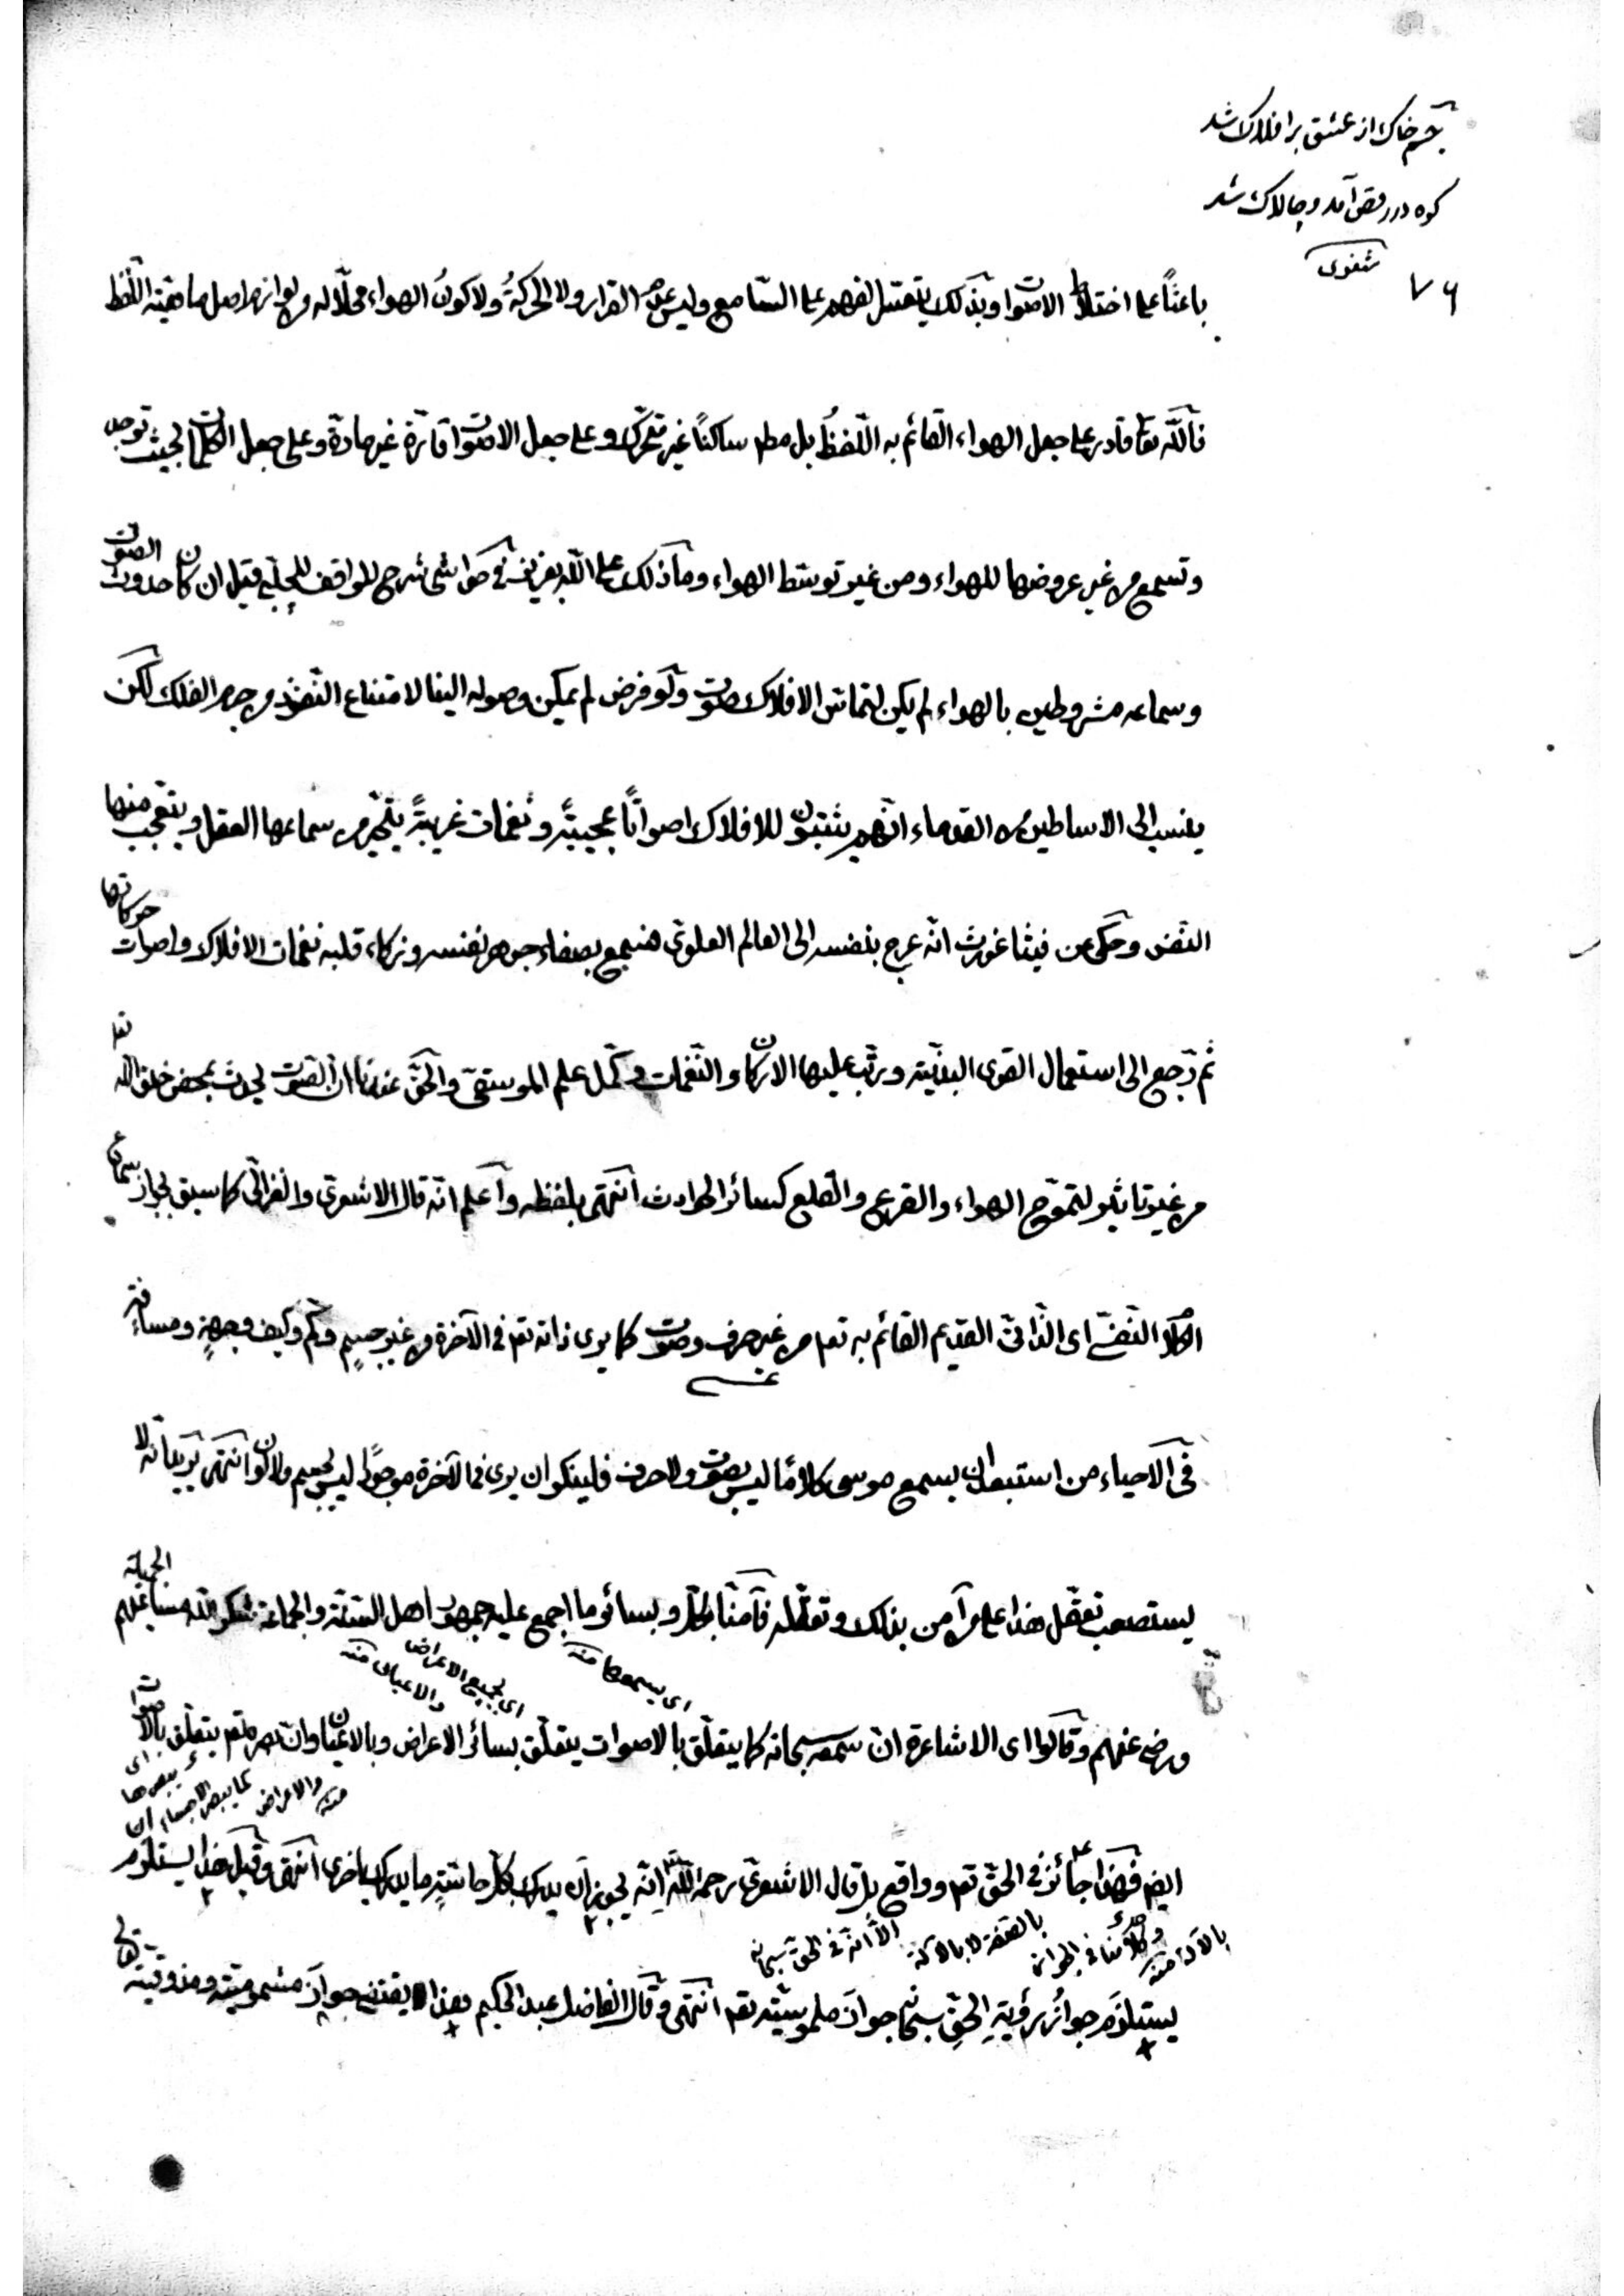 جسم خاك از عشق بر افلاك شد
كوه در رقص آمد و چالاك شد
مثنوى
٧٦
باعثًا على اختلاط الاصوات وبذلك يتعسّل الفهم على السّامع وليس عدم القرار ولا الحركةُ ولا كونُ الهواء محلّا له ولوازمها من اصل ماهيّة اللّفظ
فاللّه تعا قادر على جعل الهواء القائم به اللّفظُ بل مطـ ساكنًا غير متحرّك وعلى جعل الاصوات قارّة غير مادة وعلى جعل الكلمات بحيث توجد
وتسمع من غير عروضها للهواء ومن غير توسّط الهواء وما ذلك على اللّه بعزيز في حواشى شرح المواقف للچلبّى قيل ان كان حدوث الصوت
وسماعه مشروطين بالهواء لم يكن لتماسّ الافلاك صوت ولو فرض لم يمكن وصوله الينا لامتناع النّفوذ من جرم الفلك لكن
ينسب الى الاساطين من القدماء انّهم يثبتون للافلاك اصواتًا عجيبةً ونغمات غريبةً يتحيّر من سماعها العقل ويتعجّب منها
النّفس وحكى عن فيثاغورث انّه عرج بنفسه الى العالم العلوىّ فسمع بصفاء جوهر نفسه وذكاء قلبه نغمات الافلاك واصوات حركاتها
ثمّ رجع الى استعمال القوى البدنيّة ورتّب عليها الاركان والنّغمات وكمّل علم الموسيقى والحقّ عندنا انّ الصّوت يحدث بمحض خلق اللّه تعا
من غير تاثير لتموّج الهواء والقرع والقلع كسائر الحوادث انتهى بلفظه واعلم انّه قال الاشعرىّ والغزالىّ كما سبق بجواز سماع
الكلام النّفسىّ اى الذّاتىّ القديم القائم به تعا من غير حرف وصوت كما يرى ذاته تعـ في الآخرة من غير جسم وكم وكيف وجهةٍ ومسافةٍ
فى الاحياء من استبعد ان يسمع موسى كلامًا ليس بصوت ولا حرف فلينكر ان يرى فى الآخرة موجودًا ليس بجسم ولا لون انتهى يريد انّه لا
يستصعب تعقّل هذا على من آمن بذلك وتعقّله فآمنّا بكلّ وبسائر ما اجمع عليه جمهور اهل السّنّة والجماعة شكر اللّه مساعيهم الجميلة
ورضى عنهم وقالوا اى الاشاعرة انّ سمعه سبحانه كما يتعلّق بالاصوات يتعلّق بسائر الاعراض وبالاعيان وانّ بصره تعـ يتعلّق بالاصوات
اى يسمعها منه
اى بجميع الاعراض والاعيان منه
اى يبصرها كما يبصر الاجسام والاعراض منه
ايضـ فهذا جائز في الحقّ تعـ وواقع بل قال الاشعرىّ رحمه اللّه انّه يجوز ان يدرك بكلّ حاسّةٍ ما يدرك باخرى انتهى وقيل هذا يستلزم
بالصّفة لا بالآلة الّا انّه فى الحقّ سبحانه
وكلامنا فى الجواز
بالآلة منه
يستلزم جوازُ رؤيةِ الحقِّ سبحانه جوازَ ملموسيّته تعـ انتهى وقال الفاضل عبد الحكيم بهذا يقتضى جوازَ مشموميّته ومذوقيّته تعالى